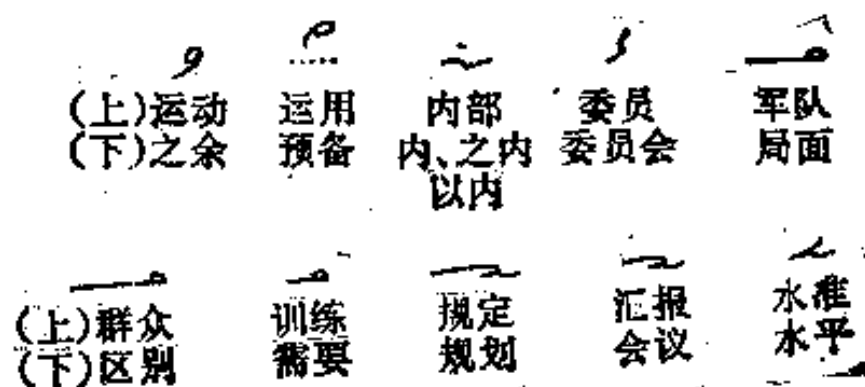 (上)运动 运用 内部 委员 军队
(下)之余 预备 内、之内 委员会 局面
以内
(上)群众 训练 规定 汇报 水准
(下)区别 需要 规划 会议 水平